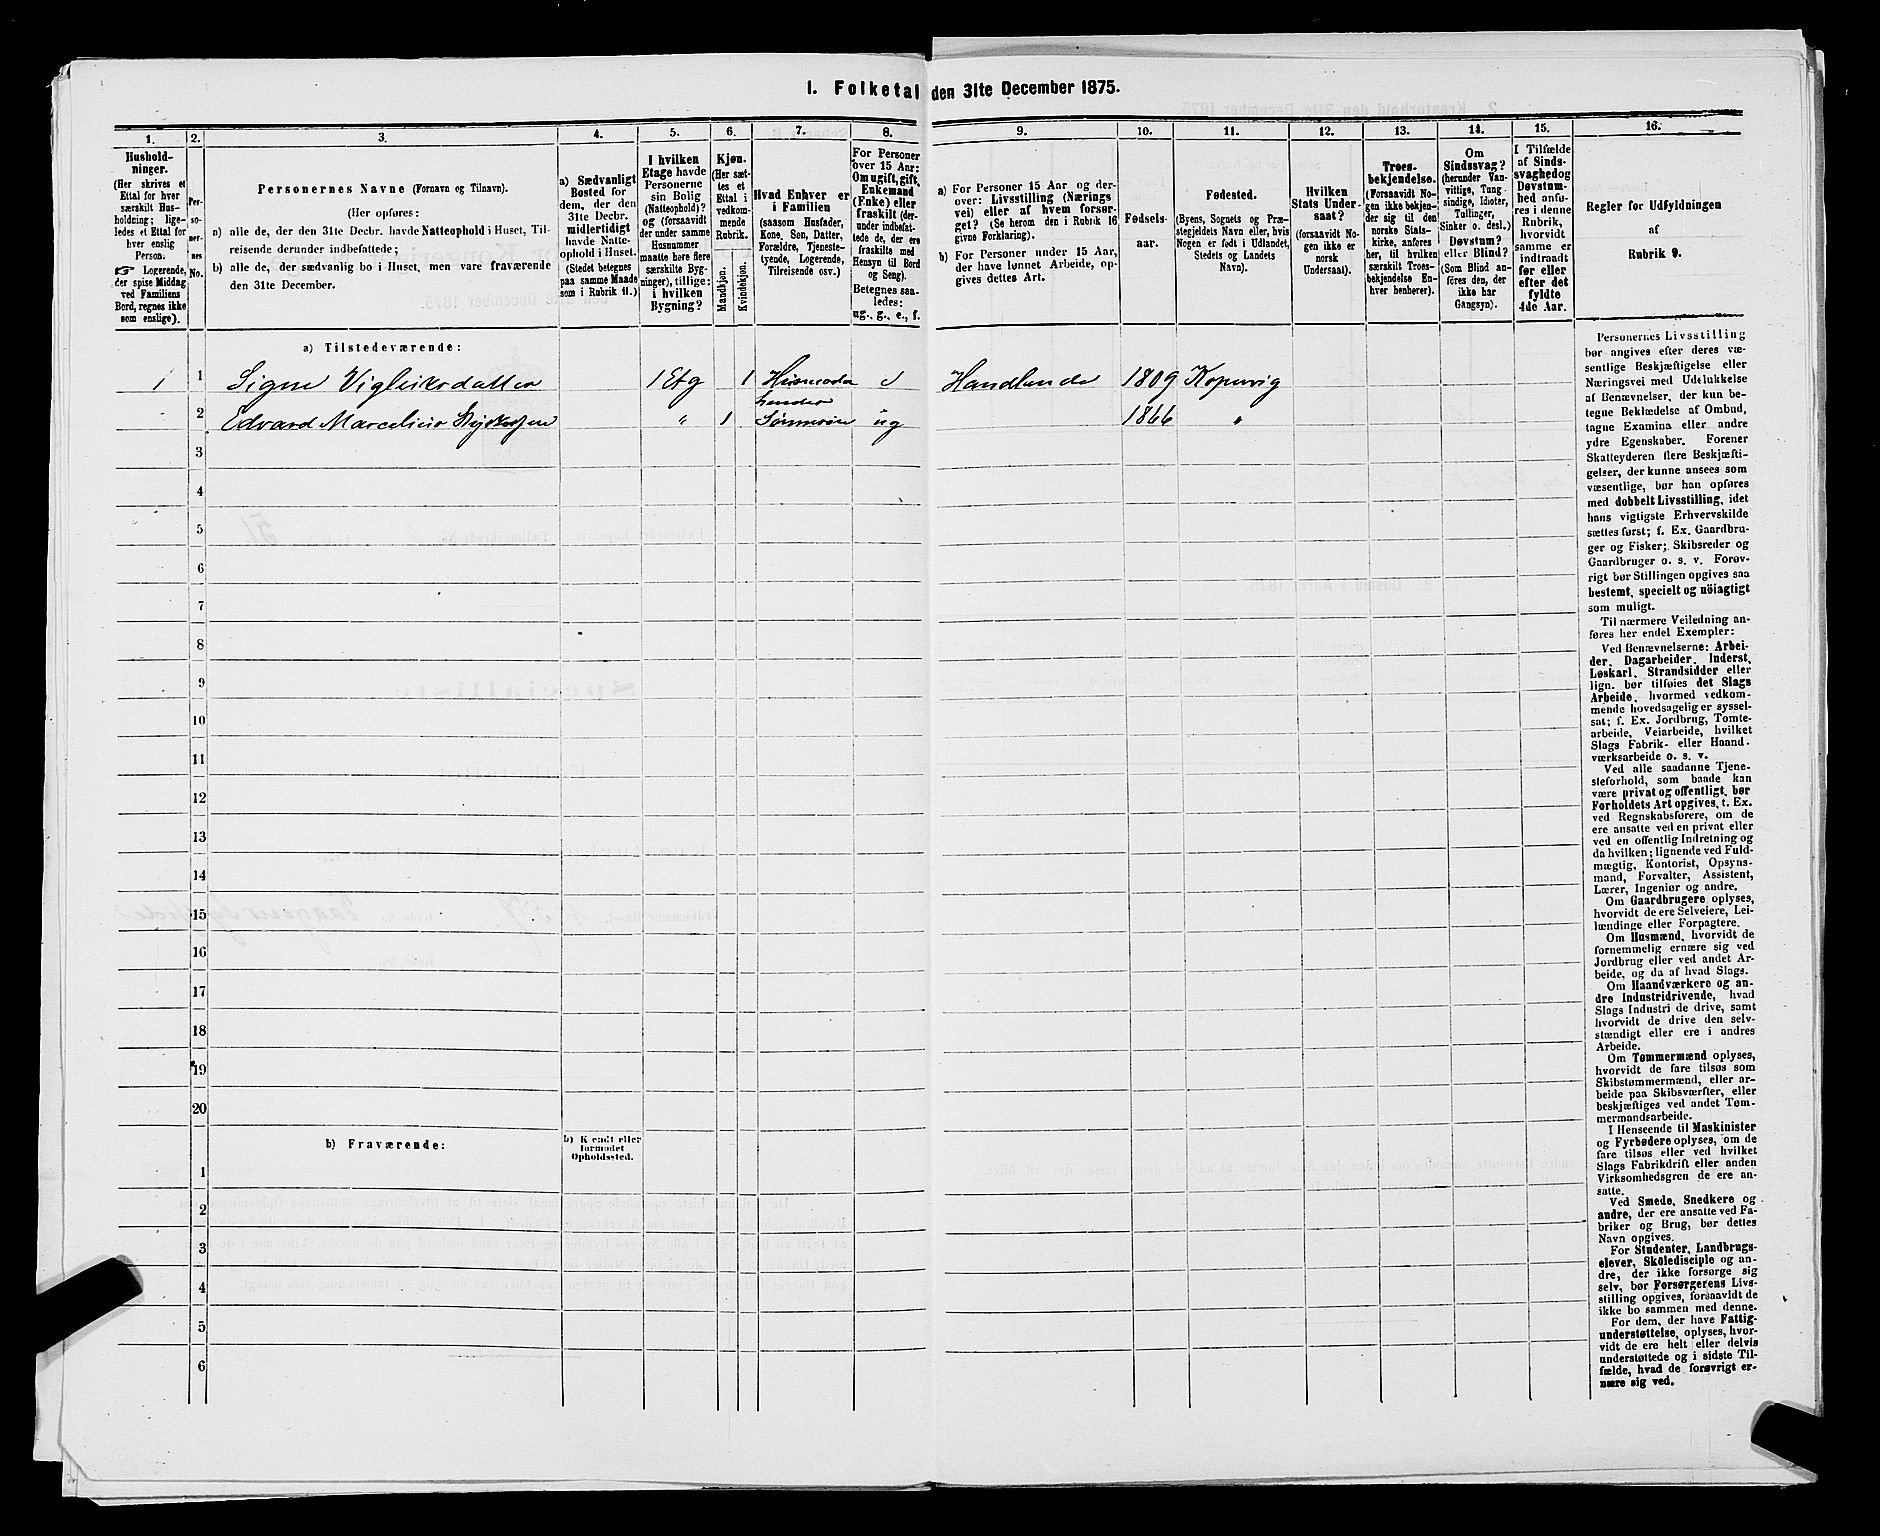 I. Folketal den 31te December 1875.
1.
Hushold-
ninger.
(Her skrives et
Ettal for hver
særskilt Hus-
holdning; lige-
ledes et Ettal for
hver enslig
Person.
☞ Logerende,
der spise Middag
ved Familiens
Bord, regnes ikke
som enslige).
2.
Per-
so-
ner-
nes
No.
3.
Personernes Navne (Fornavn og Tilnavn).
(Her opføres:
a) alle de, der den 31te Decbr. havde Natteophold i Huset, Til-
reisende derunder indbefattede;
b) alle de, der sædvanlig bo i Huset, men vare fraværende
den 31te December.
4.
a) Sædvanligt
Bosted for
dem, der den
31te Decbr.
midlertidigt
havde Natte-
ophold i Huset.
(Stedet betegnes
paa samme Maade
som i Rubrik 11.)
5.
I hvilken
Etage havde
Personerne
sin Bolig
(Natteophold)?
og (forsaavidt
der under samme
Husnummer
maatte høre flere
særskilte Byg-
ninger), tillige:
i hvilken
Bygning?
6.
Kjøn.
(Her sæt-
tes et
Ettal i
vedkom-
mende
Rubrik.
Mandkjøn.
Kvindekjøn.
7.
Hvad Enhver er
i Familien
(saasom Husfader,
Kone, Søn, Datter,
Forældre, Tjeneste-
tyende, Logerende,
Tilreisende osv.)
8.
For Personer
over 15 Aar:
Om ugift, gift,
Enkemand
(Enke) eller
fraskilt (der-
under indbefat-
tede de, der ere
fraskilte med
Hensyn til Bord
og Seng).
Betegnes saa-
ledes:
ug., g., e., f.
9.
a) For Personer 15 Aar og der-
over: Livsstilling (Nærings
vei) eller af hvem forsør-
get? (Se herom den i Rubrik 16
givne Forklaring).
b) For Personer under 15 Aar,
der have lønnet Arbeide, op-
gives dettes Art.
10.
Fødsels-
aar.
11.
Fødested.
(Byens, Sognets og Præ-
stegjeldets Navn eller, hvis
Nogen er født i Udlandet,
Stedets og Landets
Navn).
12.
Hvilken
Stats Under-
saat?
(forsaavidt No-
gen ikke er
norsk
Undersaat).
13.
Troes-
bekjendelse.
(Forsaavidt No-
gen ikke bekjen-
der sig til den
norske Stats-
kirke, anføres
her, til hvilken
særskilt Troes-
bekjendelse En-
hver henhører).
14.
Om
Sindssvag?
(herunder Van-
vittige, Tung-
sindige, Idioter,
Tullinger,
Sinker o. desl.)
Døvstum?
eller Blind?
(Som Blind an-
føres den, der
ikke har
Gangsyn).
15.
I Tilfælde
af Sinds-
svaghed og
Døvstum-
hed anfø-
res i denne
Rubrik,
hvorvidt
samme er
indtraadt
før eller
efter det
fyldte
4de Aar.
16.
Regler for Udfyldningen
af
Rubrik 9.
a) Tilstedeværende:
1 1 Signe Vigleiksdatter 1 Etg 1 Handlende 1809 Kopervig
2 Edvard Marcelius " 1 Sønnesøn ug 1866 "
3
4
5
6
7
8
9
10
11
12
13
14
15
16
17
18
19
20
b) Fraværende:
b) Kjendt eller
formodet
Opholdssted.
1
2
3
4
5
6
Personernes Livsstilling
bør angives efter deres væ-
sentlige Beskjæftigelse eller
Næringsvei med Udelukkelse
af Benævnelser, der kun be-
tegne Beklædelse af Ombud,
tagne Examina eller andre
ydre Egenskaber. Forener
Skatteyderen flere Beskjæfti-
gelser, der kunne ansees som
væsentlige, bør han opføres
med dobbelt Livsstilling, idet
hans vigtigste Erhvervskilde
sættes først; f. Ex. Gaardbru-
ger og Fisker; Skibsreder og
Gaardbruger o. s. v. Forøv-
rigt bør Stillingen opgives saa
bestemt, specielt og nöiagtigt
som muligt.
Til nærmere Veiledning an-
føres her endel Exempler:
Ved Benævnelserne: Arbei-
der, Dagarbeider, Inderst,
Løskarl, Strandsidder eller
lign. bør tilføies det Slags
Arbeide, hvormed vedkom-
mende hovedsagelig er syssel-
sat; f. Ex. Jordbrug, Tomte-
arbeide, Veiarbeide, hvilket
Slags Fabrik- eller Haand-
værksarbeide o. s. v.
Ved alle saadanne Tjene-
steforhold, som baade kan
være privat og offentligt, bør
Forholdets Art opgives, t. Ex.
ved Regnskabsførere, om de
ere ansatte ved en privat eller
ved en offentlig Indretning og
da hvilken; lignende ved Fuld-
mægtig, Kontorist, Opsyns-
mand, Forvalter, Assistent,
Lærer, Ingeniør og andre.
Om Gaardbrugere oplyses,
hvorvidt de ere Selveiere, Lei-
lændinge eller Forpagtere.
Om Husmænd, hvorvidt de
fornemmelig ernære sig ved
Jordbrug eller ved andet Ar-
beide, og da af hvad Slags.
Om Haandværkere og an-
dre Industridrivende, hvad
Slags Industri de drive, samt
hvorvidt de drive den selv-
stændigt eller ere i andres
Arbeide.
Om Tømmermænd oplyses,
hvorvidt de fare tilsøs som
Skibstømmermænd, eller ar-
beide paa Skibsværfter, eller
beskjæftiges ved andet Tøm-
mermandsarbeide.
I Henseende til Maskinister
og Fyrbødere oplyses, om de
fare tilsøs eller ved hvilket
Slags Fabrikdrift eller anden
Virksomhedsgren de ere an-
satte.
Ved Smede, Snedkere og
andre, der ere ansatte ved Fa-
briker og Brug, bør dettes
Navn opgives.
For Studenter, Landbrugs-
elever, Skoledisciple og an-
dre, der ikke forsørge sig
selv, bør Forsørgerens Livs-
stilling opgives, forsaavidt de
ikke bo sammen med denne.
For dem, der have Fattig-
understøttelse, oplyses, hvor-
vidt de ere helt eller delvis
understøttede og i sidste Til-
fælde, hvad de forøvrigt er-
nære sig ved.